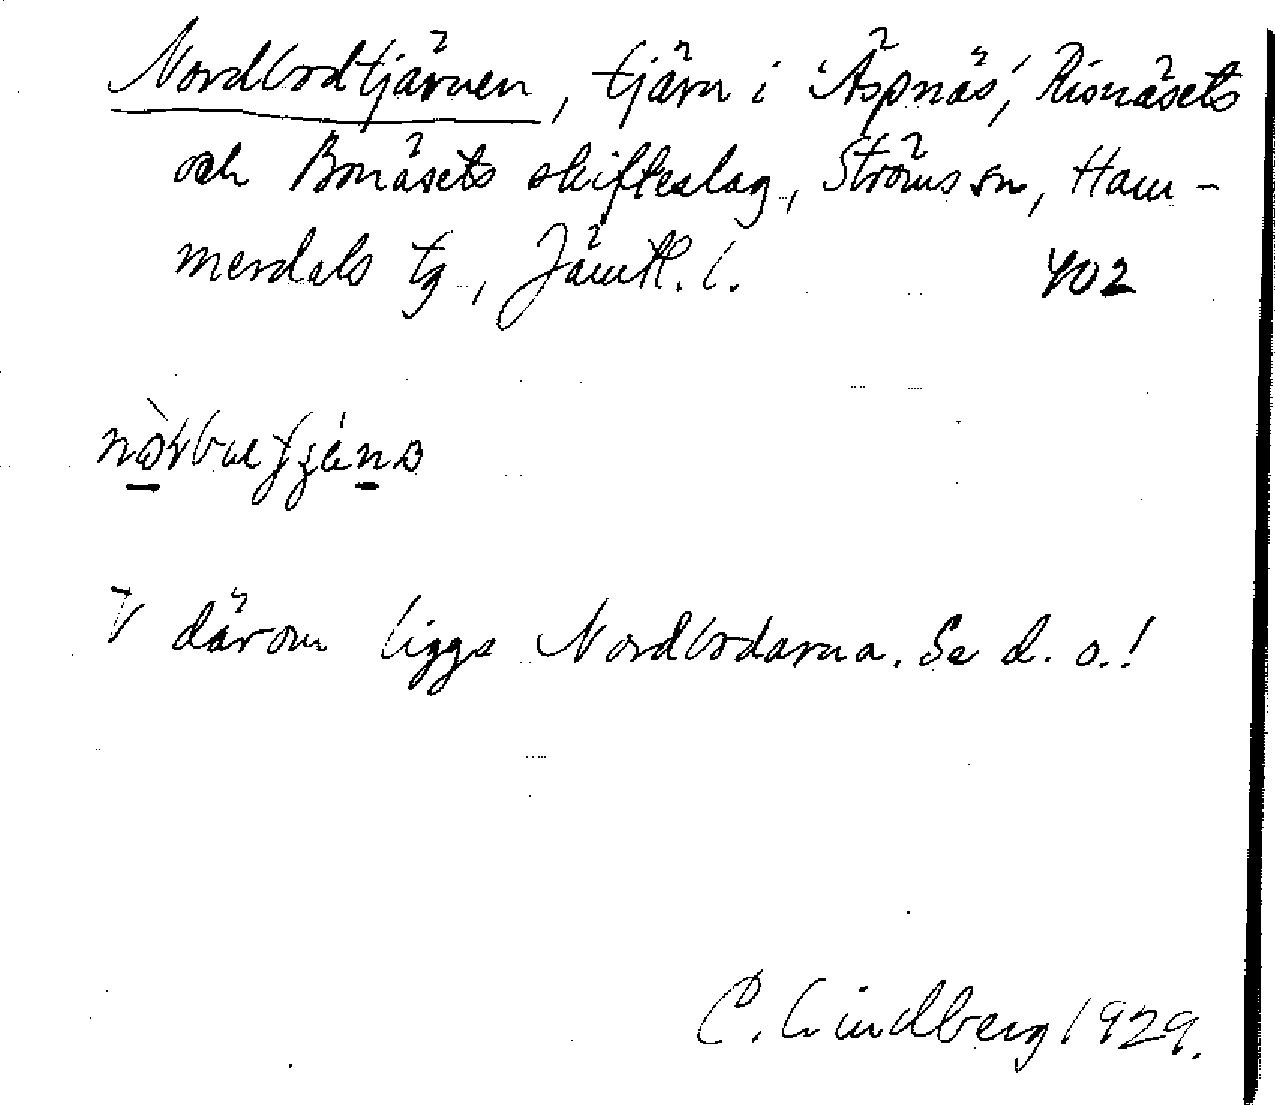 Nordbodtjärnen, tjärn i Äspnäs, Risnäsets
och Bonäsets skifteslag, Ströms sn, Ham-
merdals tg, Jämtl. l. 402
V därom ligga Nordbodarna. Se d. o.!
C. Lindberg 1929.